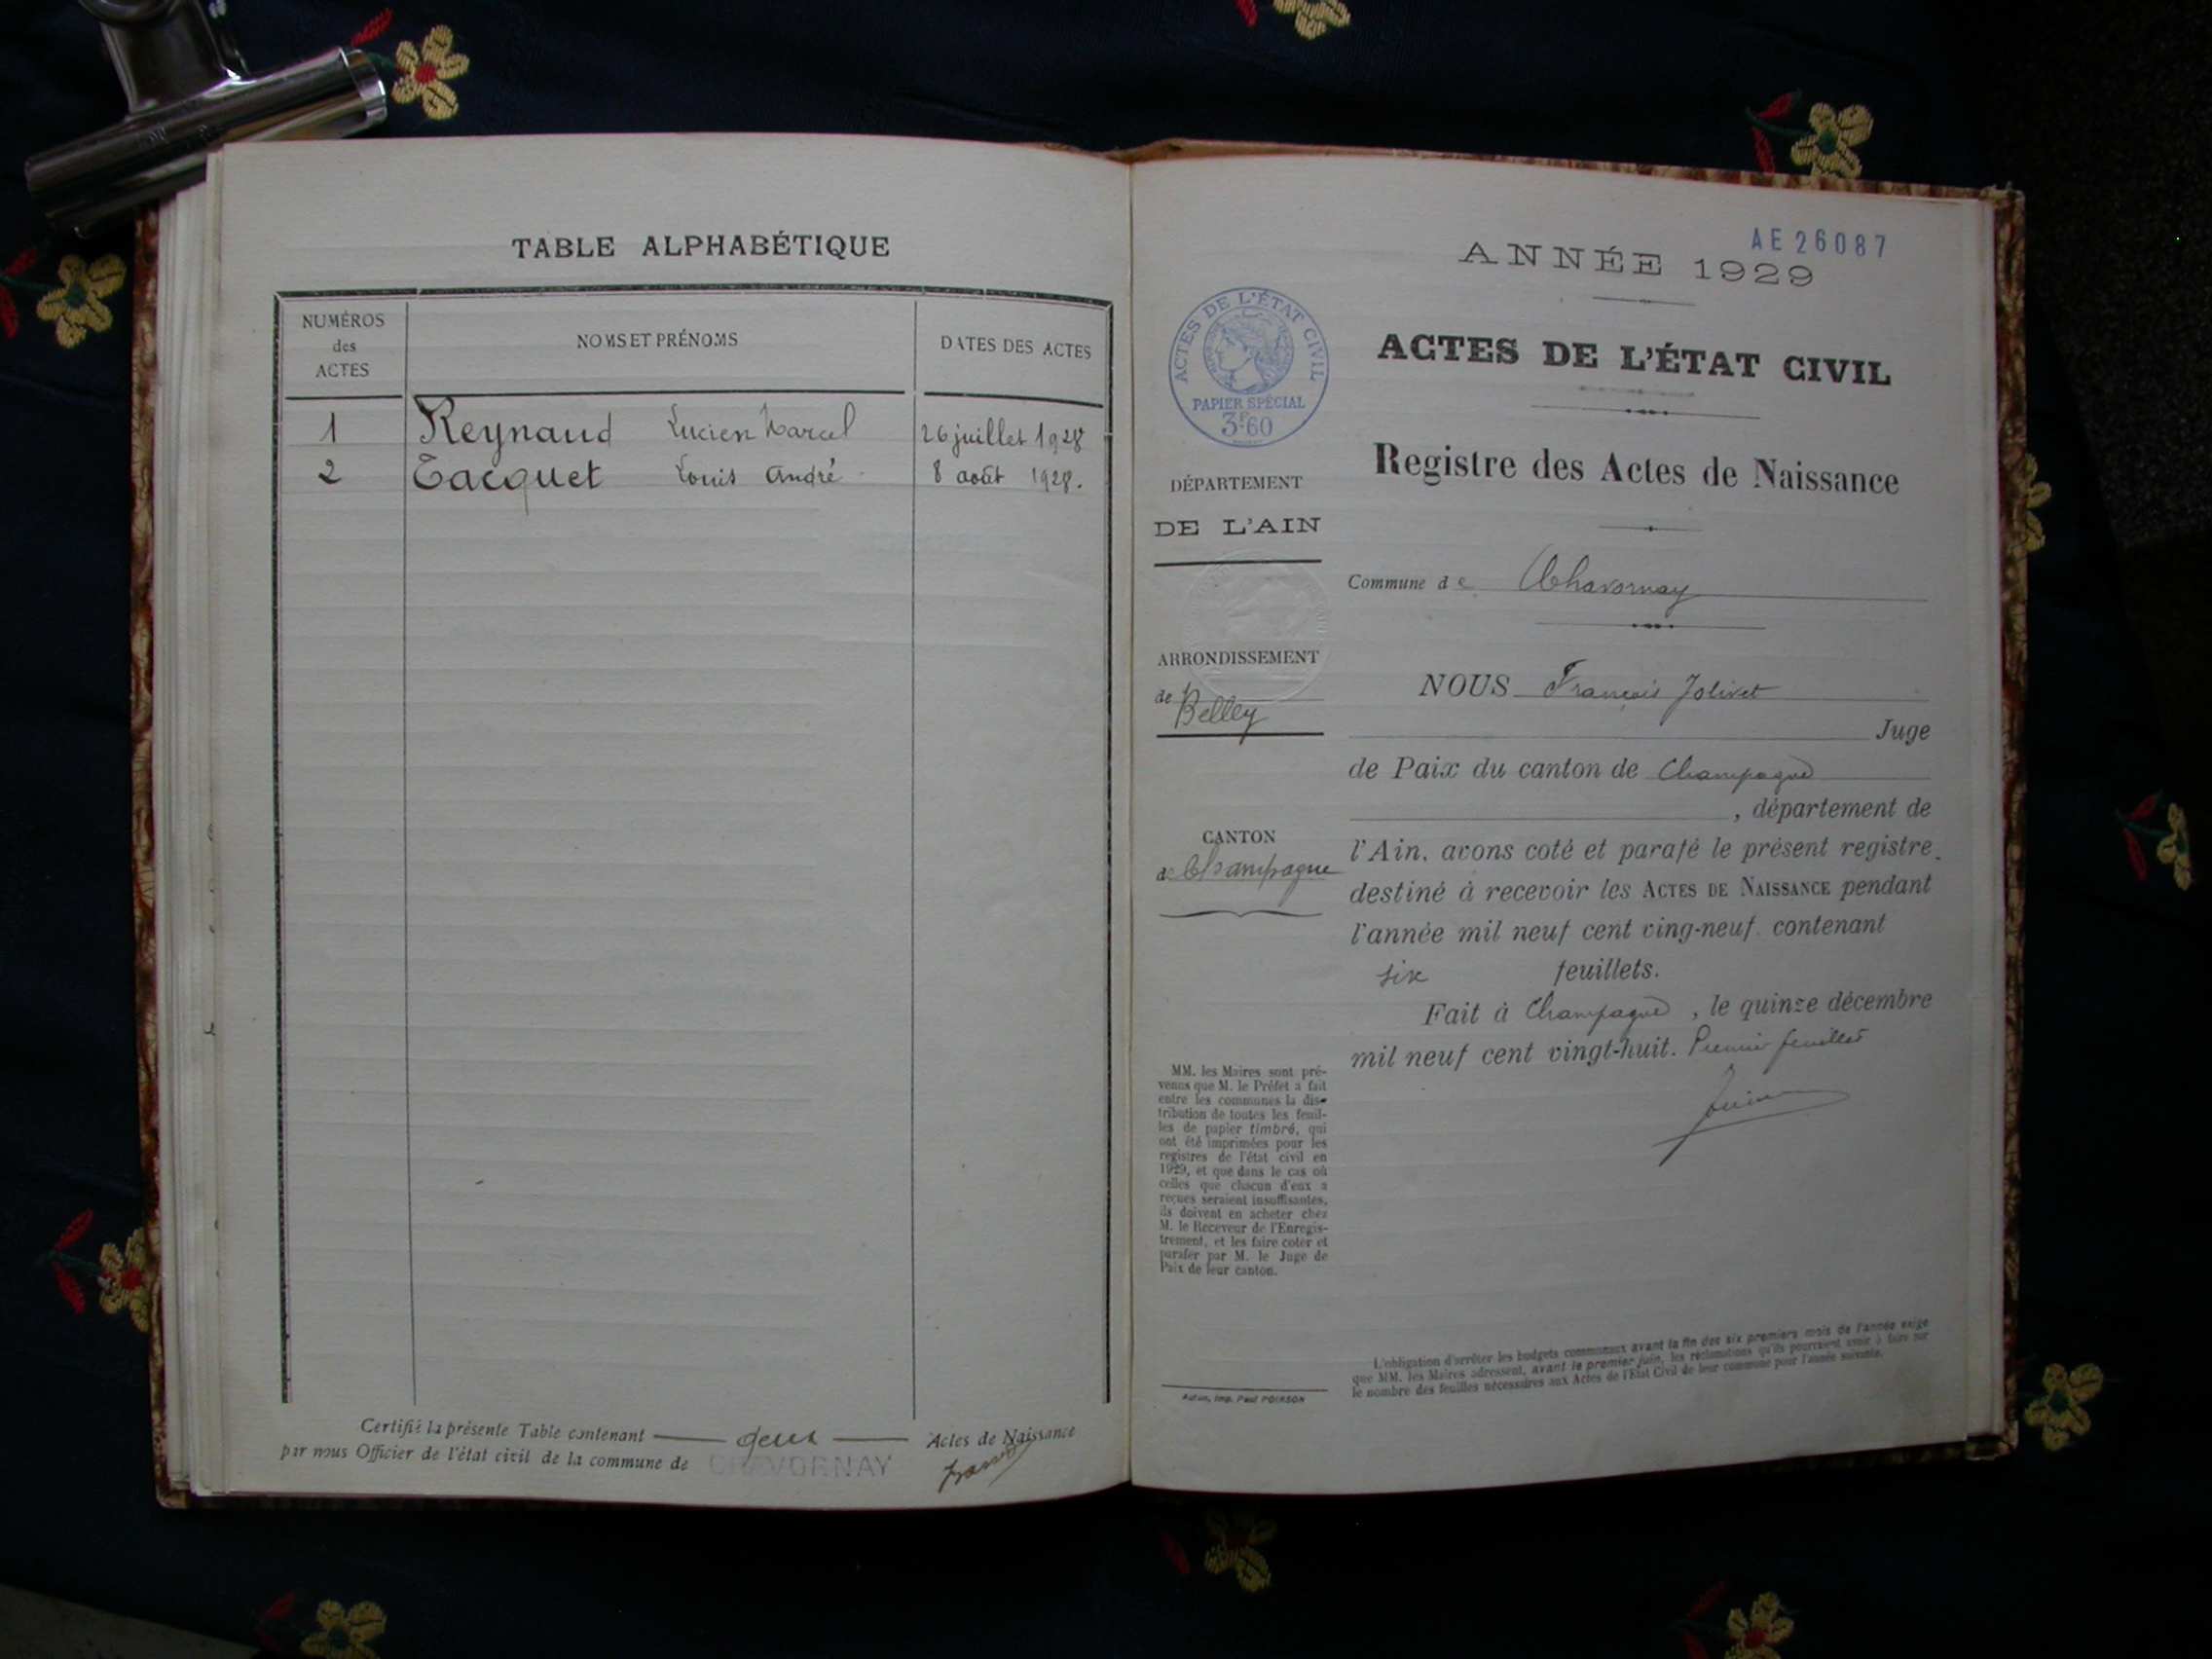 TABLE ALPHABÉTIQUE
NUMÉROS des ACTES
NOMS ET PRÉNOMS
DATES DES ACTES
1 Reynaud Lucien Marcel 26 juillet 1928
2 Tacquet Louis André 8 août 1928.
Certifié la présente Table contenant deux Actes de Naissance
par nous Officier de l'état civil de la commune de CHAVORNAY
AE 26087
ANNÉE 1929
ACTES DE L'ÉTAT CIVIL
PAPIER SPÉCIAL
3F60
ACTES DE L'ÉTAT CIVIL
Registre des Actes de Naissance
DÉPARTEMENT
DE L'AIN
Commune de Chavornay
ARRONDISSEMENT
de Belley
CANTON
de Champagne
NOUS François Jolivet
Juge
de Paix du canton de Champagne
, département de
l'Ain, avons coté et parafé le présent registre
destiné à recevoir les ACTES DE NAISSANCE pendant
l'année mil neuf cent ving-neuf contenant
six feuillets.
Fait à Champagne, le quinze décembre
mil neuf cent vingt-huit. Premier feuillet
MM. les Maires sont pré-
venus que M. le Préfet a fait
entre les communes la dis-
tribution de toutes les feuil-
les de papier timbré, qui
ont été imprimées pour les
registres de l'état civil en
1929, et que dans le cas où
celles que chacun d'eux a
reçues seraient insuffisantes,
ils doivent en acheter chez
M. le Receveur de l'Enregis-
trement, et les faire coter et
parafer par M. le Juge de
Paix de leur canton.
Autun, Imp. Paul POIRSON
L'obligation d'arrêter les budgets communaux avant la fin des six premiers mois de l'année exige
que MM. les Maires adressent, avant le premier juin, les réclamations qu'ils pourraient avoir à faire sur
le nombre des feuilles nécessaires aux Actes de l'État Civil de leur commune pour l'année suivante.